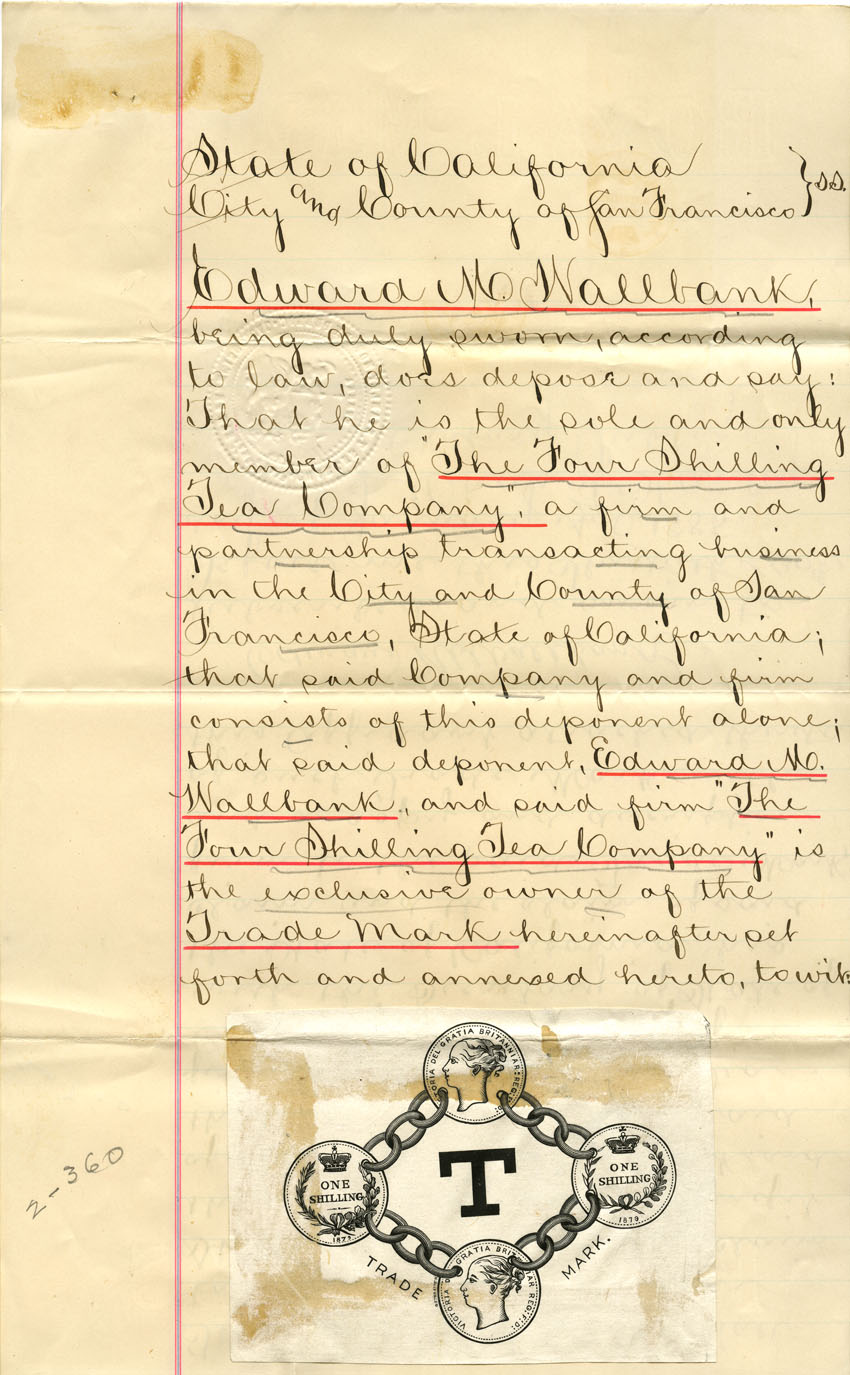 State of California
City and County of San Francisco } s.s.
Edward M. Wallbank,
being duly sworn, according
to law, does depose and say:
That he is the sole and only
member of "The Four Shilling
Tea Company", a firm and
partnership transacting business
in the City and County of San
Francisco, State of California;
that said Company and firm
consists of this deponent alone;
that said deponent, Edward M.
Wallbank, and said firm "The
Four Shilling Tea Company" is
the exclusive owner of the
Trade Mark hereinafter set
forth and annexed hereto, to wit:
2-360
DEL GRATIA BRITANNIAR:REG:
ONE
SHILLING
T
ONE
SHILLING
1879
VICTORIA DEL GRATIA BRITANNIAR REG:F:D:
TRADE MARK.